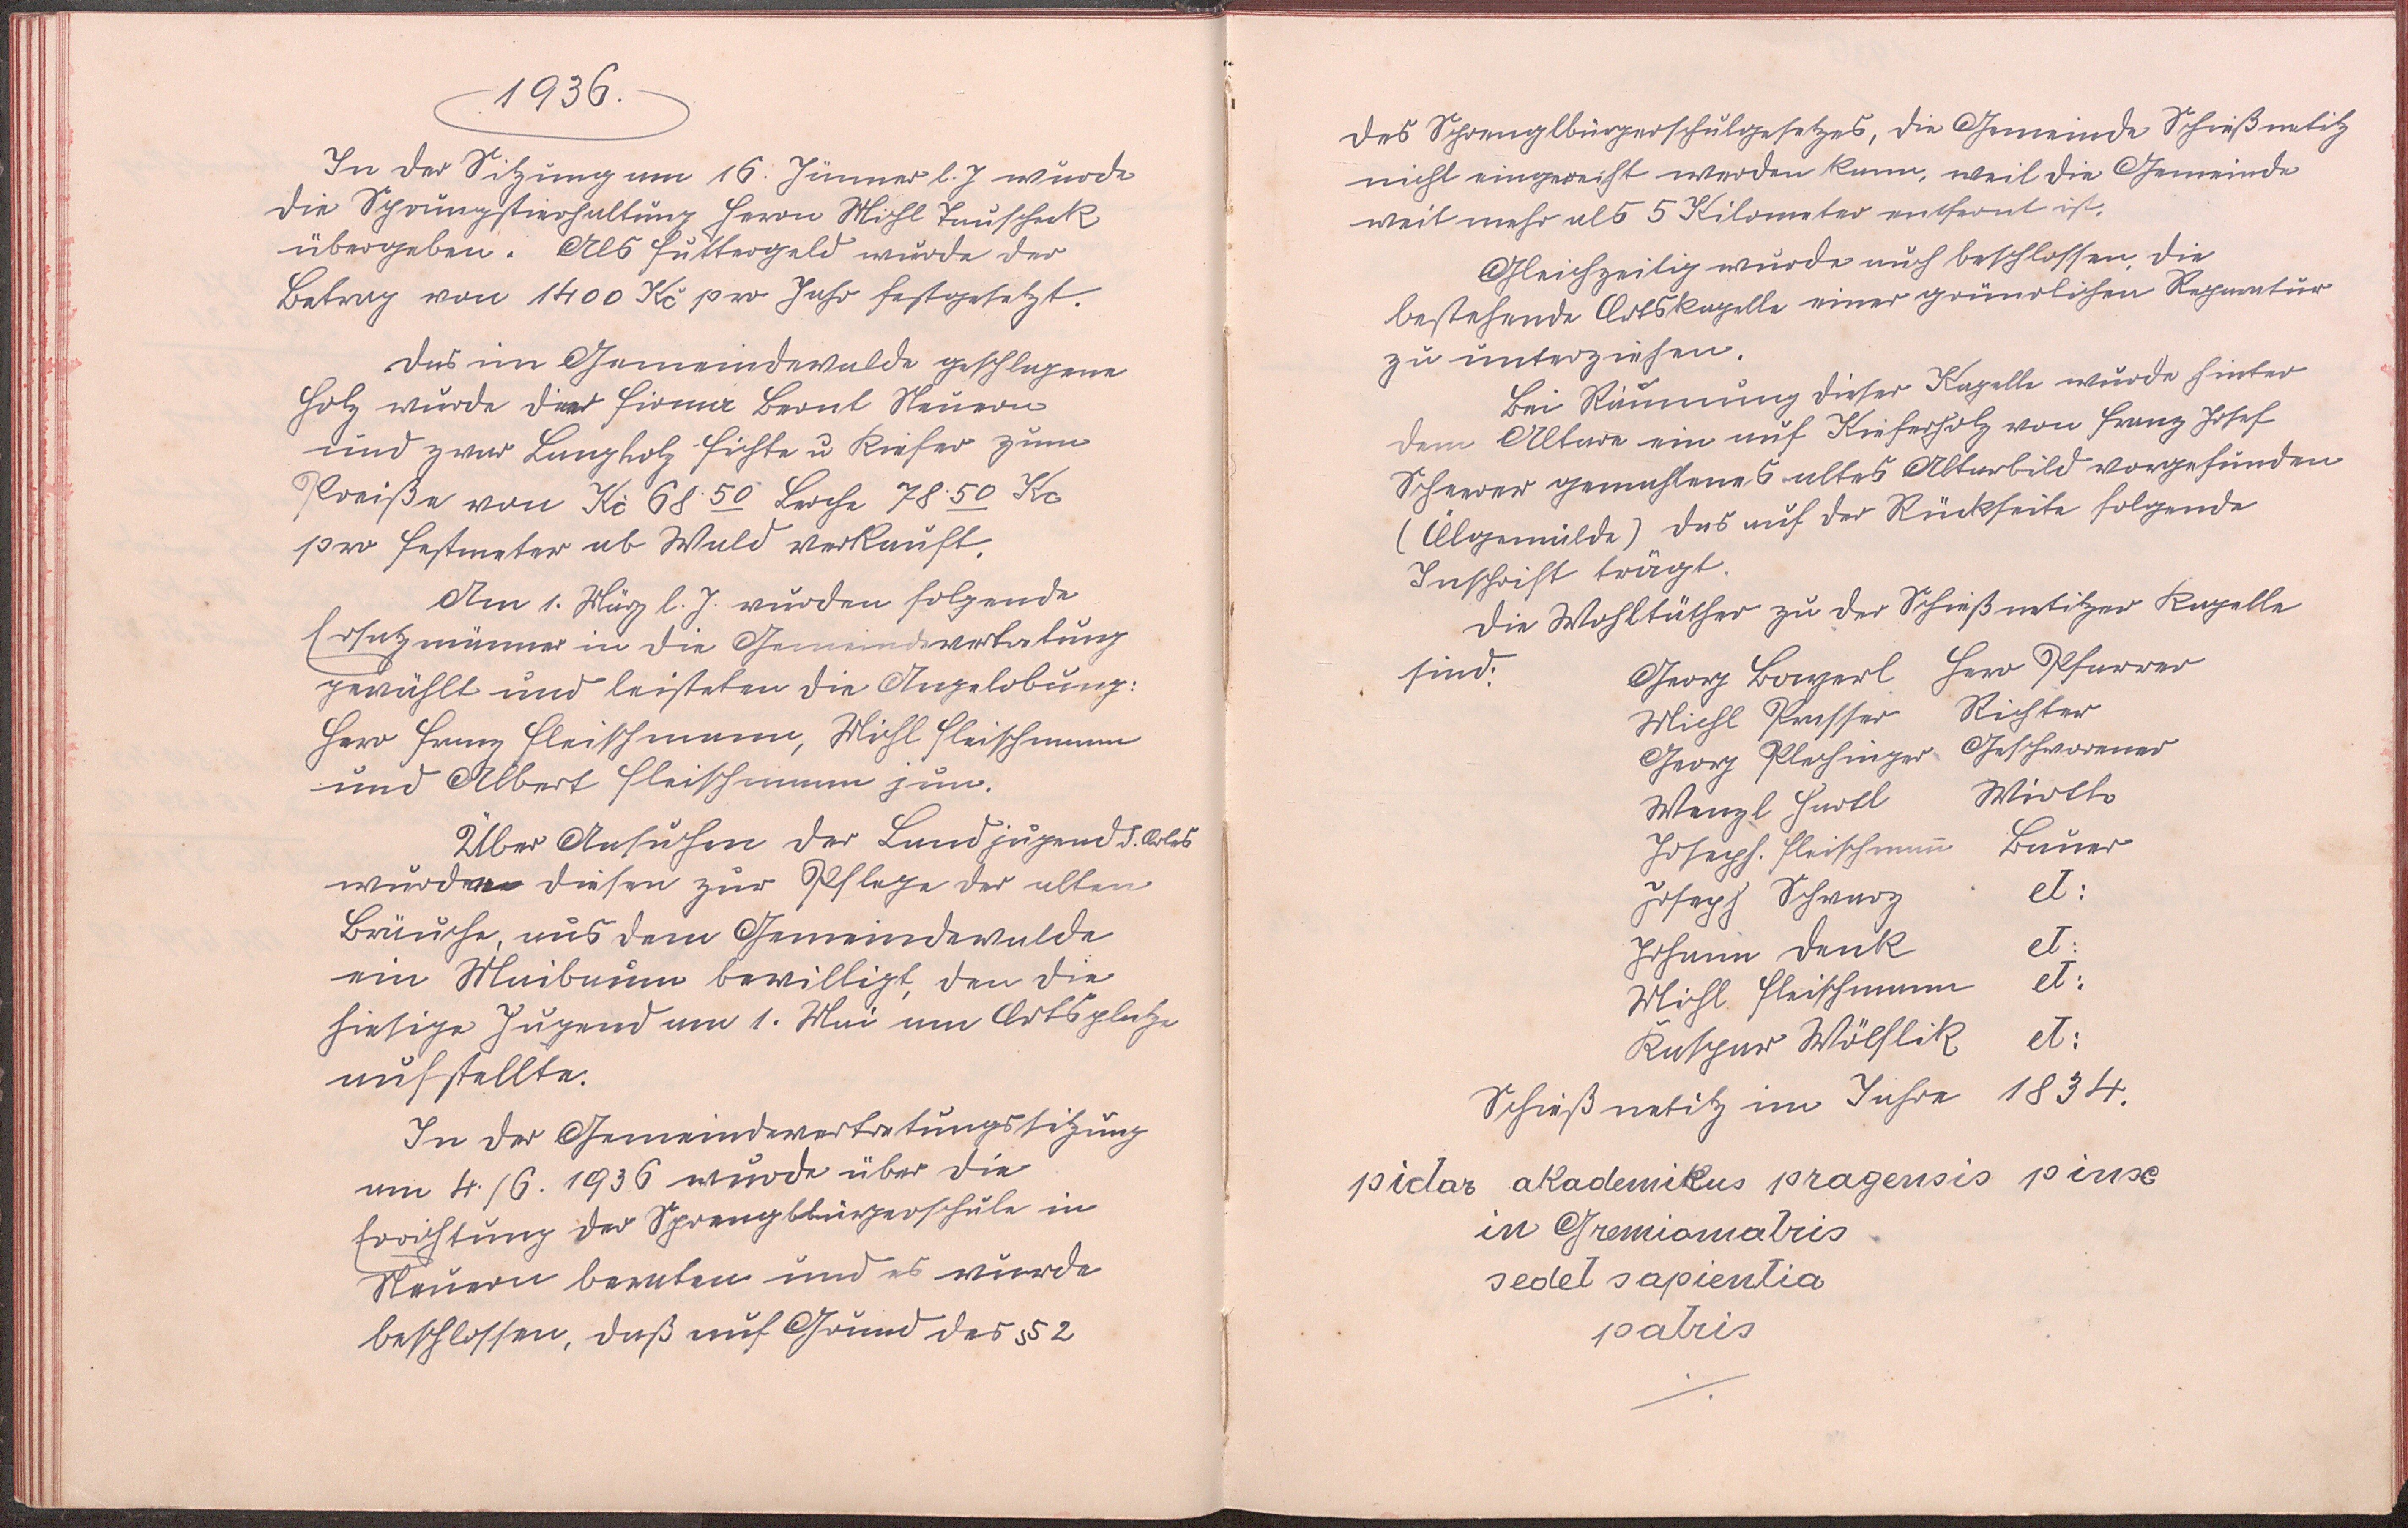 1936.
In der Sitzung am 16. Jänner l. J wurde
die Sprungstierhaltung Herrn Michl Tauscheck
übergeben. Als Futtergeld wurde der
Betrag von 1400 Kč pro Jahr festgesetzt.
Das im Gemeindewalde geschlagene
Holz wurde der Firma Bernt Neuern
und zwar Langholz Fichte u Kiefer zum
Preiße von Kč 68·50 Lerche 78·50 Kc
pro Festmeter ab Wald verkauft.
Am 1. März l. J. wurden folgende
Ersatzmänner in die Gemeindevertretung
gewählt und leisteten die Angelobung:
Herr Franz Fleischmann, Michl Fleischmann
und Albert Fleischmann jun.
Über Ansuchen der Landjugend d. Ortes
wurde diesen zur Pflege der alten
Bräuche, aus dem Gemeindewalde
ein Maibaum bewilligt, den die
hiesige Jugend am 1. Mai am Ortsplatze
aufstellte.
In der Gemeindevertretungssitzung
am 4./6. 1936 wurde über die
Errichtung der Sprenglbürgerschule in
Neuern beraten und es wurde
beschlossen, daß auf Grund des § 2
des Sprenglbürgerschulgesetzes, die Gemeinde Schießnetitz
nicht eingereiht werden kann, weil die Gemeinde
weit mehr als 5 Kilometer entfernt ist.
Gleichzeitig wurde auch beschlossen, die
bestehende Ortskapelle einer gründlichen Reparatur
zu unterziehen.
Bei Räumung dieser Kapelle wurde hinter
dem Altare ein auf Kieferholz von Franz Josef
Scheerer gemahlenes altes Altarbild vorgefunden
(Ölgemälde) das auf der Rückseite folgende
Inschrift trägt.
Die Wohltäther zu der Schießnetitzer Kapelle
sind: Georg Bayerl Herr Pfarrer
Michl Presser Richter
Georg Plechinger Geschworener
Wenzl Hartl Wirtl
Joseph. Fleischmann̄ Bauer
Joseph Schwarz et:
Johann Denk et:
Michl Fleischmann et:
Kaspar Wölflik et:
Schießnetitz im Jahre 1834.
pictor akademikus pragensis pinx
in Gremiomatris
sedet sapientia
patris